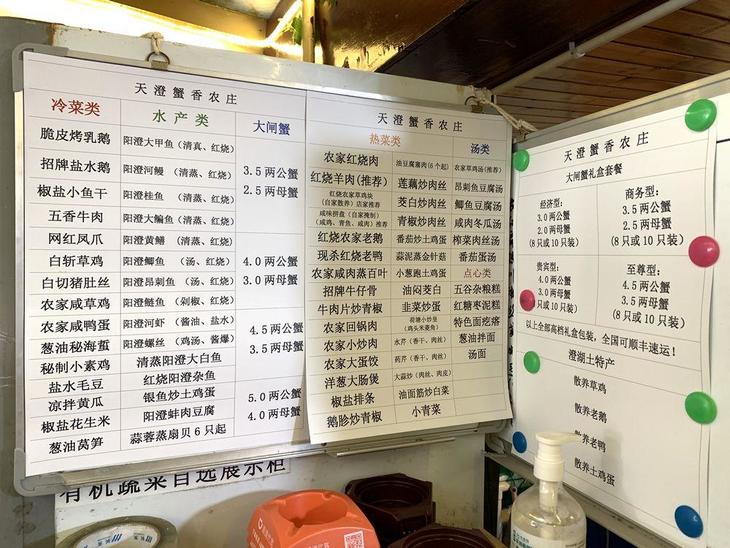 天澄蟹香农庄
冷菜类
水产类
大闸蟹
脆皮烤乳鹅
阳澄大甲鱼（清真、红烧）
招牌盐水鹅
阳澄河鳗（清蒸、红烧）
3.5两公蟹
2.5两母蟹
椒盐小鱼干
阳澄桂鱼（清蒸、红烧）
五香牛肉
阳澄大鳊鱼（清蒸、红烧）
网红凤爪
阳澄黄鳝（清蒸、红烧）
白斩草鸡
阳澄鲫鱼（汤、红烧）
4.0两公蟹
3.0两母蟹
白切猪肚丝
阳澄昂刺鱼（汤、红烧）
农家咸草鸡
阳澄鲢鱼（剁椒、红烧）
农家咸鸭蛋
阳澄河虾（酱油、盐水）
4.5两公蟹
3.5两母蟹
葱油秘海蜇
阳澄螺丝（鸡汤、酱爆）
秘制小素鸡
清蒸阳澄大白鱼
盐水毛豆
红烧阳澄杂鱼
凉拌黄瓜
银鱼炒土鸡蛋
5.0两公蟹
4.0两母蟹
椒盐花生米
阳澄蚌肉豆腐
葱油莴笋
蒜蓉蒸扇贝6只起
天澄蟹香农庄
热菜类
汤类
农家红烧肉
油豆腐塞肉(6个起)
农家草鸡汤(推荐)
红烧羊肉(推荐)
莲藕炒肉丝
昂刺鱼豆腐汤
红烧农家草鸡块
（自家散养）店家推荐
茭白炒肉丝
鲫鱼豆腐汤
咸味拼盘（自家腌制）
（咸鸡、青鱼、咸肉）推荐
青椒炒肉丝
咸肉冬瓜汤
红烧农家老鹅
番茄炒土鸡蛋
榨菜肉丝汤
现杀红烧老鸭
蒜泥蒸金针菇
番茄蛋汤
农家咸肉蒸百叶
小葱跑土鸡蛋
点心类
招牌牛仔骨
油闷茭白
五谷杂粮糕
牛肉片炒青椒
韭菜炒蛋
红糖枣泥糕
农家回锅肉
荷塘小炒
(鸡头米菱角)
特色面疙瘩
农家小炒肉
水芹（香干、肉丝）
葱油拌面
农家大蛋饺
药芹（香干、肉丝）
汤面
洋葱大肠煲
大蒜炒（肉丝、肉皮）
椒盐排条
油面筋炒白菜
鹅胗炒青椒
小青菜
天澄蟹香农庄
大闸蟹礼盒套餐
经济型：
3.0两公蟹
2.0两母蟹
(8只或10只装)
商务型：
3.5两公蟹
2.5两母蟹
(8只或10只装)
贵宾型：
4.0两公蟹
3.0两母蟹
(8只或10只装)
至尊型：
4.5两公蟹
3.5两母蟹
(8只或10只装)
以上全部高档礼盒包装，全国可顺丰速运！
澄湖土特产
散养草鸡
散养老鹅
散养老鸭
散养土鸡蛋
有机蔬菜自选展示柜